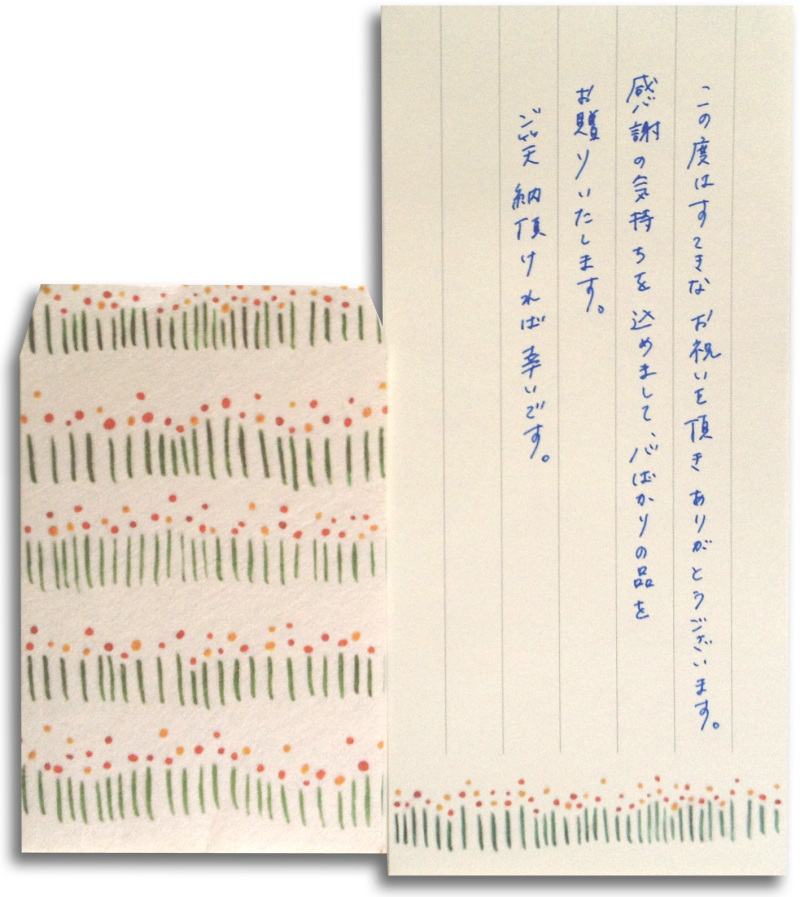 この度はすてきなお祝いを頂きありがとうございます。
感謝の気持ちを込めまして、心ばかりの品を
お贈りいたします。
ご笑納頂ければ幸いです。